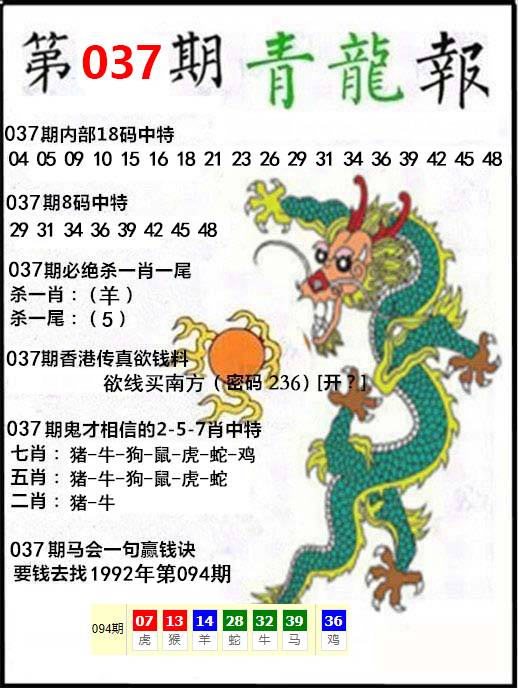 第037期 青龍報
037期内部18码中特
04 05 09 10 15 16 18 21 23 26 29 31 34 36 39 42 45 48
037期8码中特
29 31 34 36 39 42 45 48
037期必绝杀一肖一尾
杀一肖：（羊）
杀一尾：（5）
037期香港传真欲钱料
欲线买南方（密码 236）[开？]
037期鬼才相信的2-5-7肖中特
七肖：猪-牛-狗-鼠-虎-蛇-鸡
五肖：猪-牛-狗-鼠-虎-蛇
二肖：猪-牛
037期马会一句赢钱诀
要钱去找1992年第094期
094期 07 13 14 28 32 39 36
虎 猴 羊 蛇 牛 马 鸡